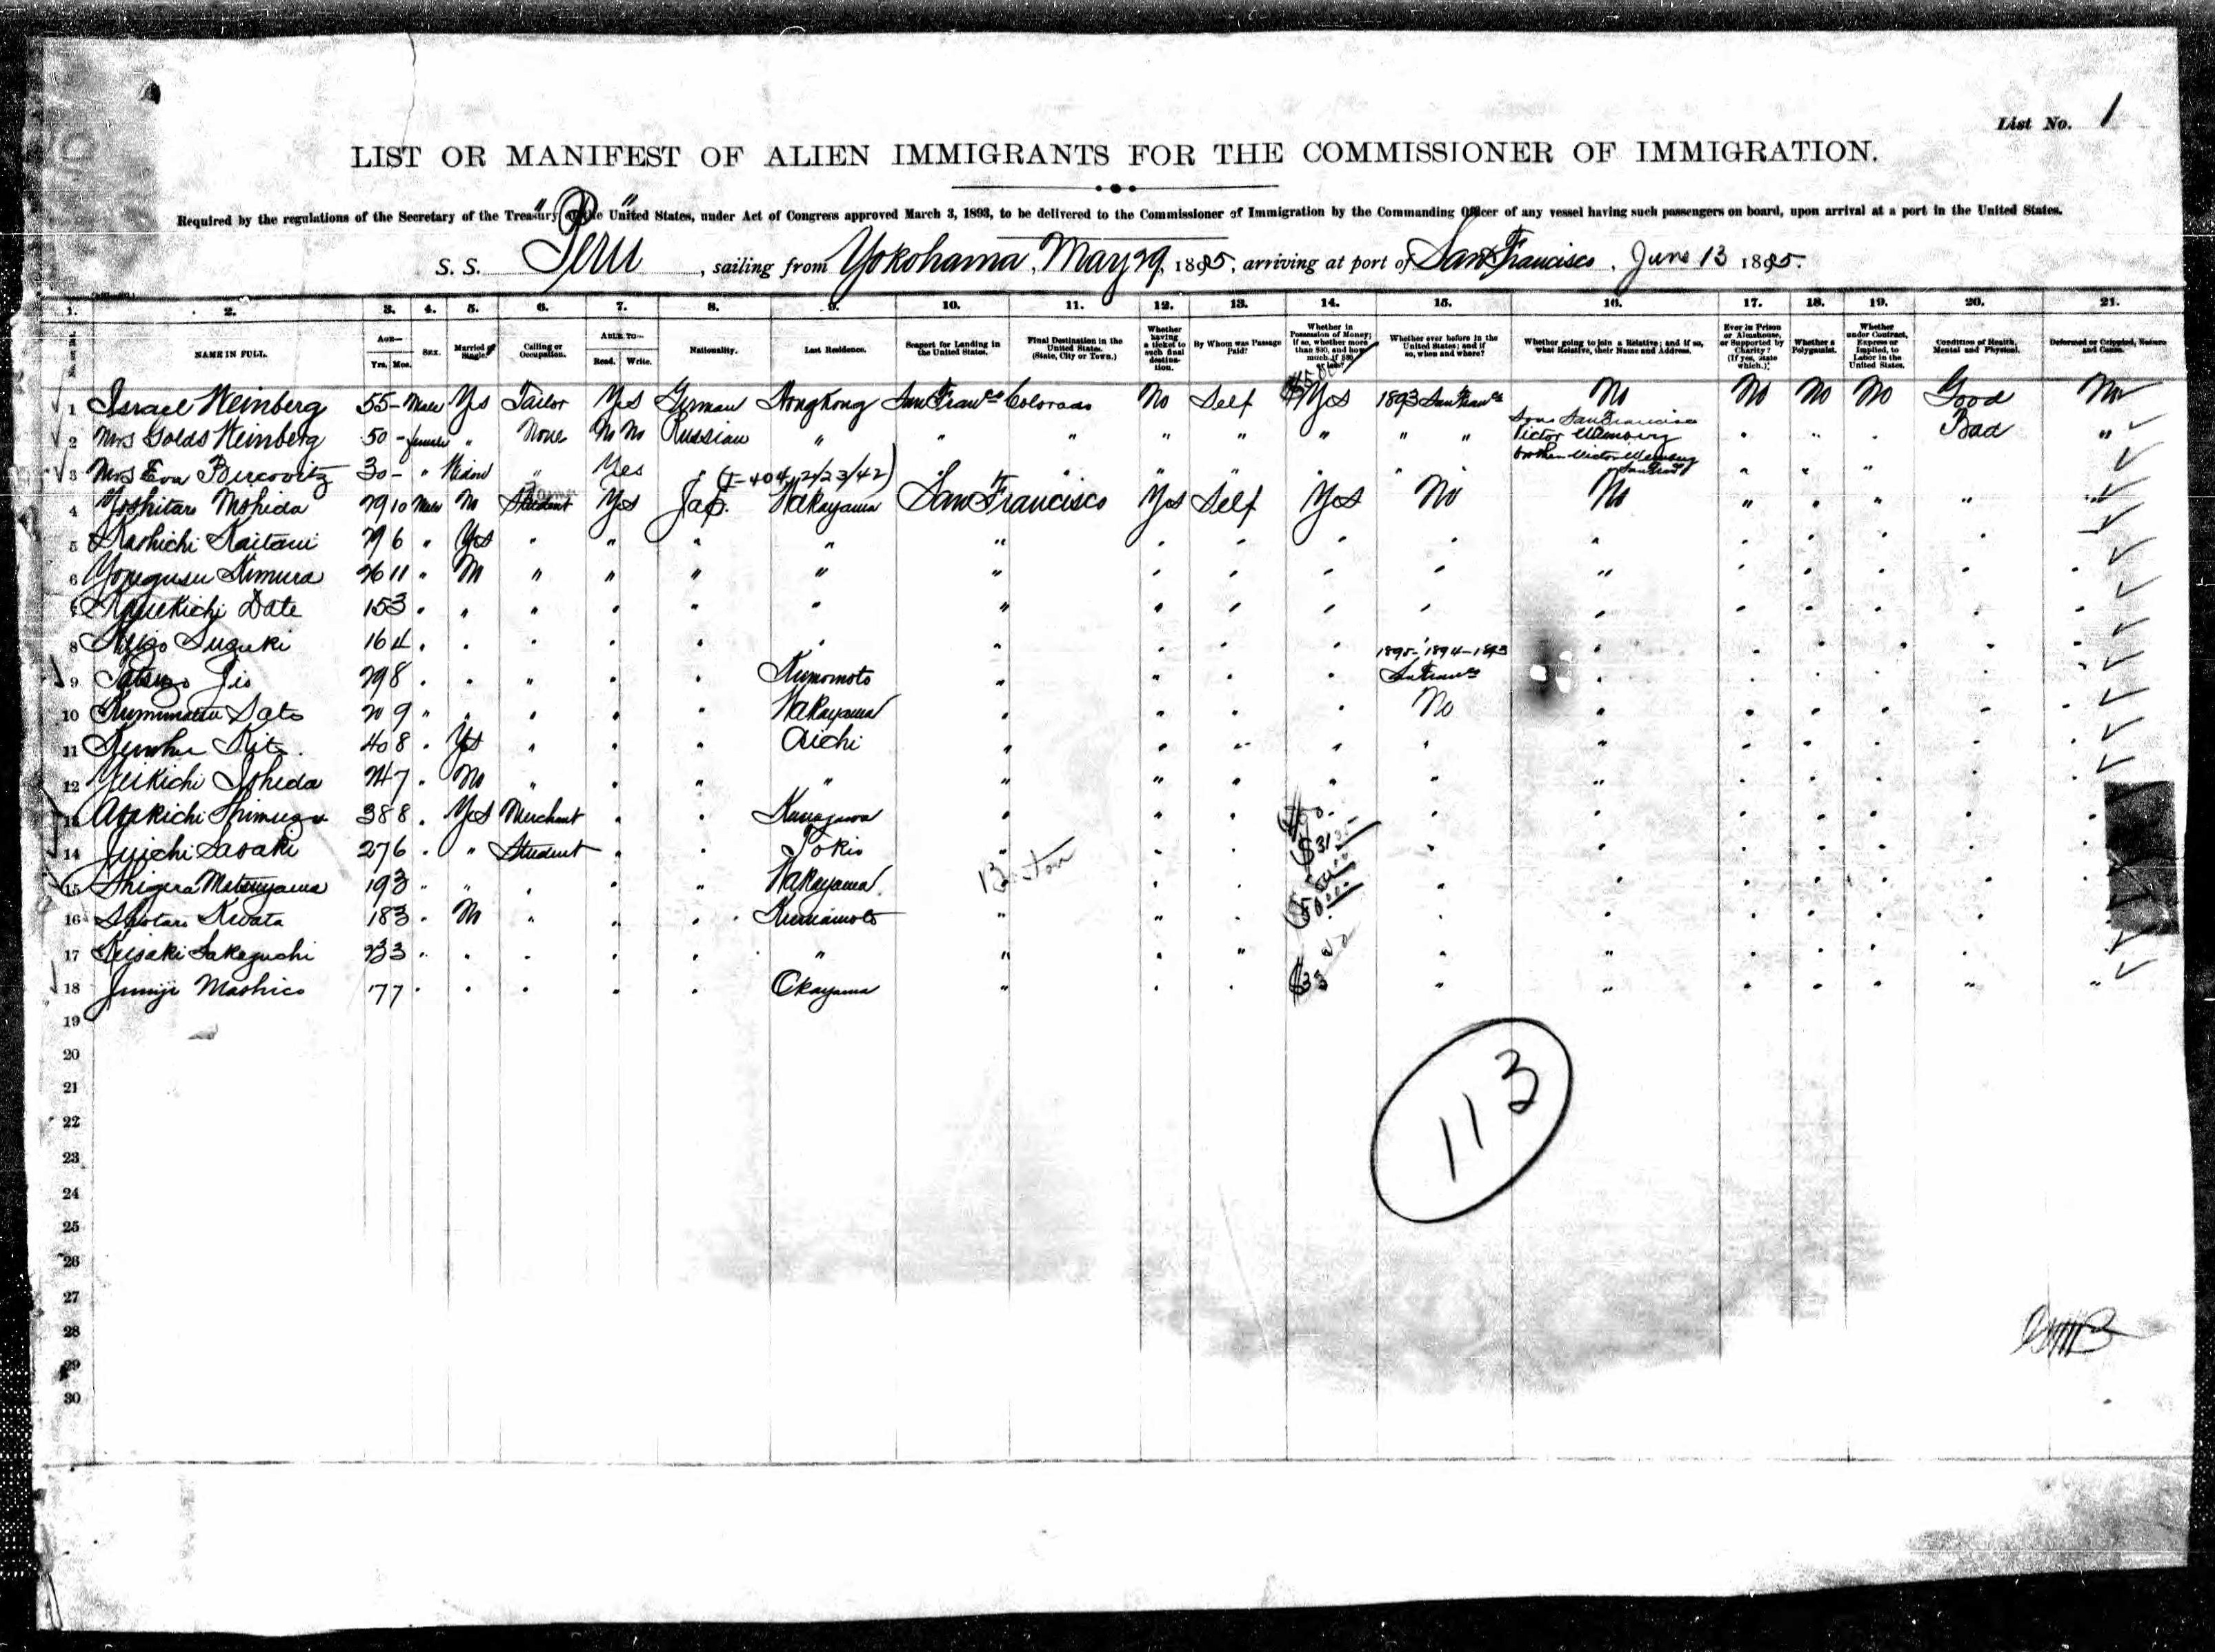 List No. 1
LIST OR MANIFEST OF ALIEN IMMIGRANTS FOR THE COMMISSIONER OF IMMIGRATION.
Required by the regulations of the Secretary of the Treasury of the United States, under Act of Congress approved March 3, 1893, to be delivered to the Commissioner of Immigration by the Commanding Officer of any vessel having such passengers on board, upon arrival at a port in the United States.
S. S. "Peru", sailing from Yokohama, May 29, 1895, arriving at port of San Francisco, June 13 1895.
1. 2. 3. 4. 5. 6. 7. 8. 9. 10. 11. 12. 13. 14. 15. 16. 17. 18. 19. 20. 21.
NAME IN FULL. AGE— Yrs. Mos. SEX. Married or Single. Calling or Occupation. ABLE TO— Read. Write. Nationality. Last Residence. Seaport for Landing in the United States. Final Destination in the United States. (State, City or Town.) Whether having a ticket to such final destination. By Whom was Passage Paid? Whether in Possession of Money; If so, whether more than $30, and how much, if $30 or less? Whether ever before in the United States; and if so, when and where? Whether going to join a Relative; and if so, what Relative, their Name and Address. Ever in Prison or Almshouse, or Supported by Charity? (If yes, state which.) Whether a Polygamist. Whether under Contract, Express or Implied, to Labor in the United States. Condition of Health, Mental and Physical. Deformed or Crippled, Nature and Cause.
1 Israel Weinberg 55 - Male Yes Tailor Yes German Hongkong San Franco Colorado No Self Yes 1893 San Franco No No No No Good No
2 Mrs Golda Weinberg 50 - female " None No No Russian " " " " " " " " Sons San Francisco Victor Weinberg " " " Bad "
3 Mrs Eva Bercovitz 30 - " Widow " Yes " (T-404, 2/23/42) " " " " " " brother Victor Weinberg San Franco " " "
4 Yoshitaro Noshida 29 10 Male No Student Yes Jap. Wakayama San Francisco Yes Self Yes No No " " " " "
5 Kashichi Kaitani 29 6 " Yes " " " " " " " " " " " " " "
6 Kimura 26 11 " No " " " " " " " " " " " " " "
7 Date 15 3 " " " " " " " " " " " " " " " "
8 Suzuki 16 4 " " " " " " " " " " " " " " "
9 Jio 29 8 " " " " " Kumomoto " " " " 1895-1894-1893 San Franco " " " "
10 Sato 20 9 " " " " " Wakayama " " " " No " " " " "
11 Kito 40 8 " Yes " " " Aichi " " " " " " " " " "
12 Yeikichi Ishida 24 7 " No " " " " " " " " " " " " " "
13 Asakichi Shimizu 38 8 " Yes Merchant " " Kanagawa " " " " " " " " " "
14 Juichi Sasaki 27 6 " " Student " " Tokio " " " $31 " " " " " "
15 Shigera Matsuyama 19 3 " " " " " Wakayama Boston " " " " " " " " "
16 Shotaro Kwata 18 3 " No " " " Kumamoto " " " $50 " " " " " "
17 Keisaki Sakaguchi 23 3 " " " " " " " " " " " " " " "
18 Junije Mashico " " " " " Okayama " " " $33 " " " " " " "
19
20
21
22
23
24
25
26
27
28
29
30
113